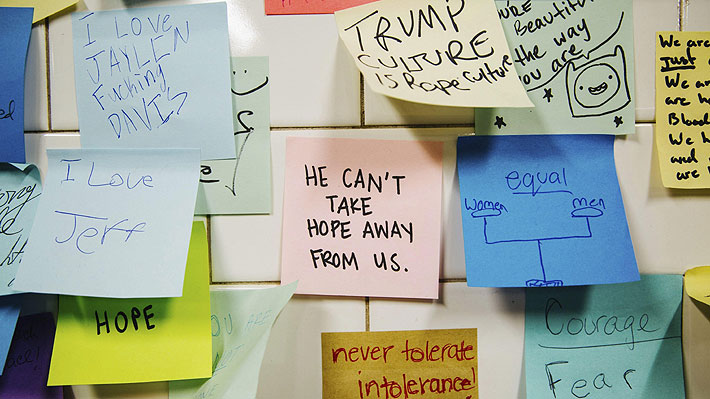 I Love
JAYLEN
Fucking
DAVIS
TRUMP
CULTURE
IS Rape Culture
Beautiful
the way
you are
We are
Just
We are
are
Blood
We
and
are
I Love
Jeff
HE CAN'T
TAKE
HOPE AWAY
FROM US.
equal
women men
HOPE
YOU ARE
never tolerate
intolerance!
Courage
Fear